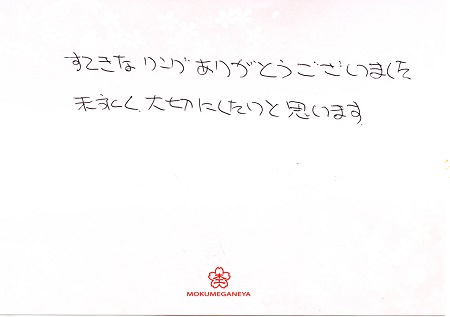 すてきなリングありがとうございました
末永く大切にしたいと思います
MOKUMEGANEYA